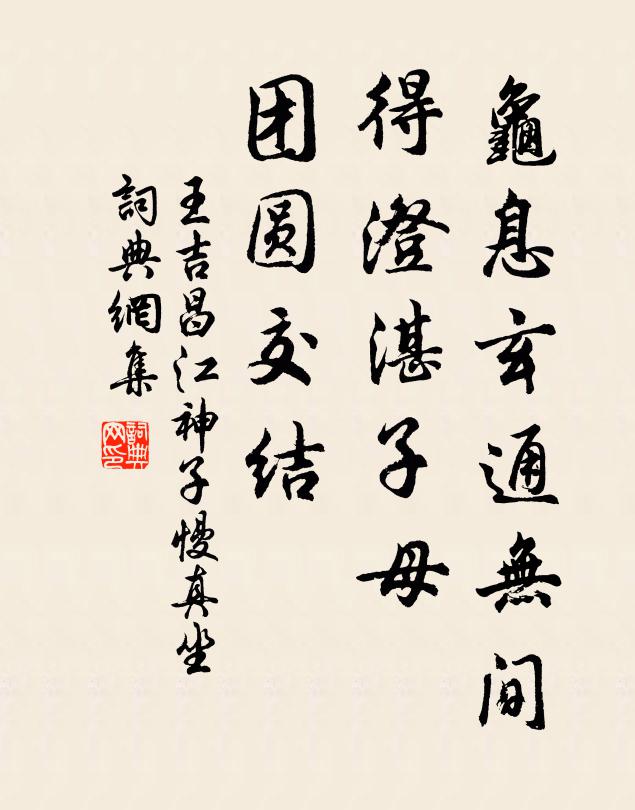 龜息玄通無间
得澄湛子母
团圆交结
王吉昌江神子慢真坐
詞典網集
詞典网印